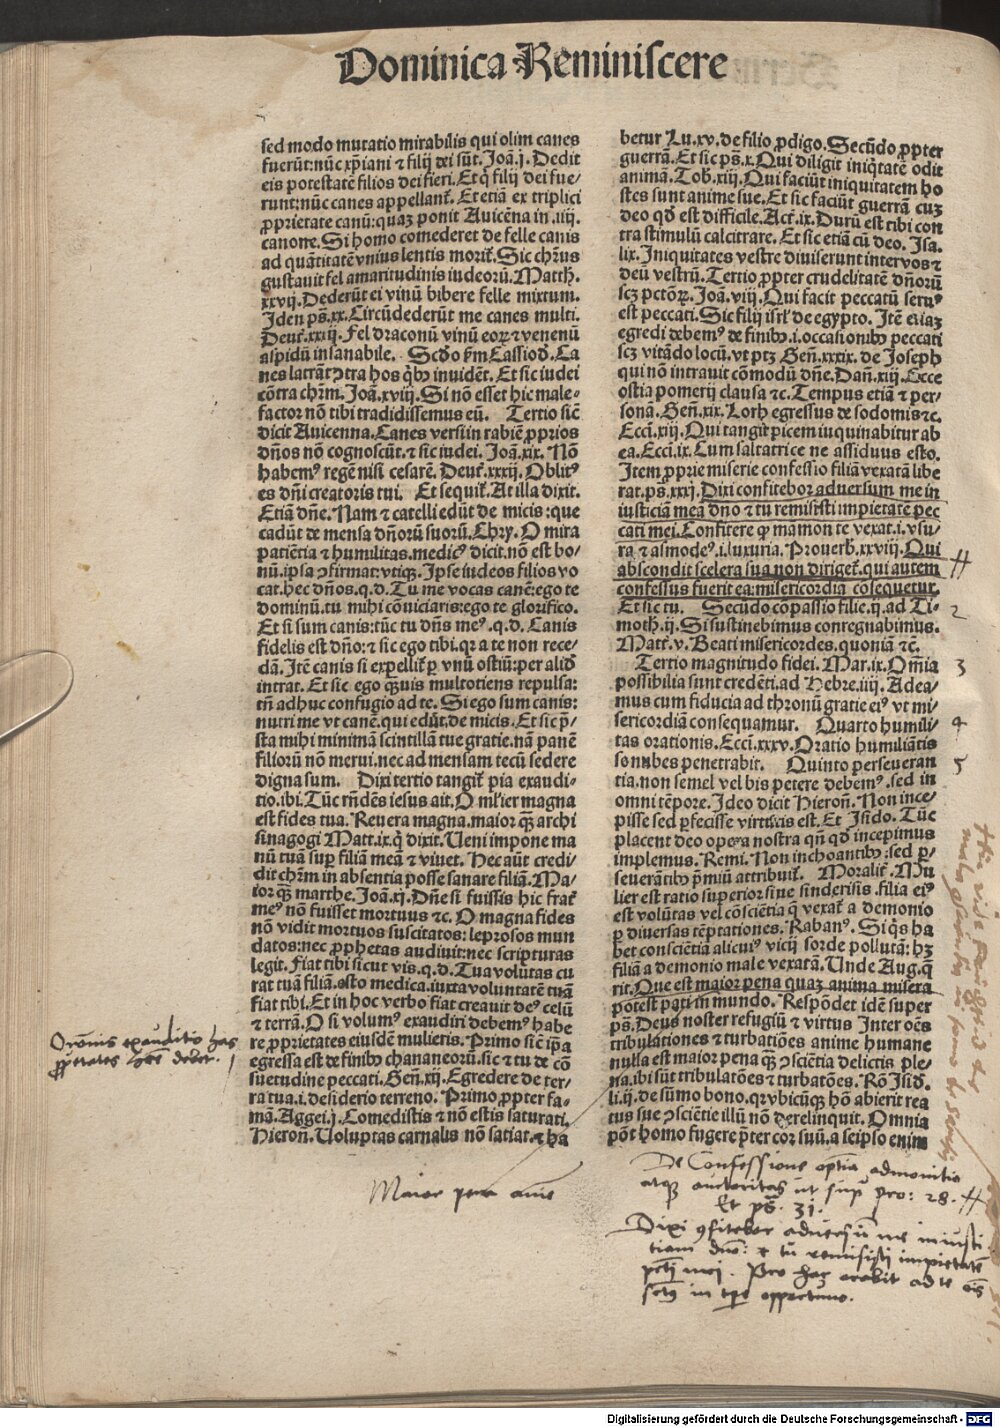 Dominica Reminiscere
sed modo mutatio mirabilis qui olim canes
fuerūt: nūc xp̄iani ⁊ filij dei sūt. Joā. j. Dedit
eis potestatē filios dei fieri. Et q̄ filij dei fue/
runt: nūc canes appellant̄. Et etiā ex triplici
ꝓprietate canū: quaꝫ ponit Auicēna in .iiij.
canone. Si homo comederet de felle canis
ad quātitatē vnius lentis morit̄. Sic chr̄us
gustauit fel amaritudinis iudeorū. Matth.
xxvij. Dederūt ei vinū bibere felle mixtum.
Iden ps̄. xx. Circūdederūt me canes multi.
Deut̄. xxij. Fel draconū vinū eoꝝ ⁊ venenū
aspidū insanabile. Scd̄o ẜm Cassiod̄. Ca
nes latrāt ꝯtra hos q̄bꝫ inuidēt. Et sic iudei
cōtra chr̄m. Joā. xviij. Si nō esset hic male-
factor nō tibi tradidissemus eū. Tertio sic̄
dicit Auicenna. Canes versi in rabiē ꝓprios
dn̄os nō cognoscūt. ⁊ sic iudei. Joā. xix. Nō
habemꝰ regē nisi cesarē. Deut̄. xxxij. Oblitꝰ
es dn̄i creatoris tui. Et sequit̄. At illa dixit.
Etiā dn̄e. Nam ⁊ catelli edūt de micis: que
cadūt de mensa dn̄orū suorū. Chry. O mira
patiētia ⁊ humilitas. medicꝰ dicit. nō est bo-
nū. ipsa ꝯfirmat: vtiqꝫ. Ipse iudeos filios vo
cat. hec dn̄os. q. d. Tu me vocas canē: ego te
dominū. tu mihi cōuiciaris: ego te glorifico.
Et si sum canis: tūc tu dn̄s meꝰ. q. d. Canis
fidelis est dn̄o: ⁊ sic ego tibi. qꝛ a te non rece-
dā. Itē canis si expellit̄ ꝑ vnū ostiū: per aliđ
intrat. Et sic ego qꝫuis multotiens repulsa:
tn̄ adhuc confugio ad te. Si ego sum canis:
nutri me vt canē. qui edūt de micis. Et sic p̄-
sta mihi minimā scintillā tue gratie. nā panē
filiorū nō merui. nec ad mensam tecū sedere
digna sum. Dixi tertio tangit̄ pia exaudi-
tio. ibi. Tūc rn̄dēs iesus ait. O ml̓ier magna
est fides tua. Reuera magna. maior qꝫ archi
sinagogi Matt. ix. q̄ dixit. Veni impone ma
nū tuā sup̄ filiā meā ⁊ viuet. Hec aūt credi-
dit chr̄m in absentia posse sanare filiā. Ma-
ior qꝫ marthe. Joā. xj. Dn̄e si fuissis hic frat̄
meꝰ nō fuisset mortuus ⁊c. O magna fides
nō vidit mortuos suscitatos: leprosos mun
datos: nec ꝓphetas audiuit: nec scripturas
legit. Fiat tibi sicut vis. q. d. Tua volūtas cu
rat tuā filiam. esto medica. iuxta voluntatē tuā
fiat tibi. Et in hoc verbo fiat creauit deꝰ celū
⁊ terrā. O si volumꝰ exaudiri debemꝰ habe
re ꝓprietates eiusdē mulieris. Primo sic̄ ip̄a
egressa est de finibꝫ chananeorū. sic ⁊ tu de cō
suetudine peccati. Gen̄. xij. Egredere de ter-
ra tua. i. desiderio terreno. Primo ꝓpter fa-
mā. Aggei. j. Comedistis ⁊ nō estis saturati.
Hieron̄. Voluptas carnalis nō satiat. ⁊ ha
betur Lu. xv. de filio ꝓdigo. Secūdo ꝓpter
guerrā. Et sic ps̄. x. Qui diligit iniq̄tatē odit
animā. Tob̄. xij. Qui faciūt iniquitatem ho
stes sunt anime sue. Et sic faciūt guerrā cuꝫ
deo qđ est difficile. Act̄. ix. Durū est tibi con
tra stimulū calcitrare. Et sic etiā cū deo. Isa.
lix. Iniquitates vestre diuiserunt inter vos ⁊
deū vestrū. Tertio ꝓpter crudelitatē dn̄orū
scꝫ pctōꝝ. Joā. viij. Qui facit peccatū seruꝰ
est peccati. Sic filij isrl̓ de egypto. Itē etiaꝫ
egredi debemꝰ de finibꝫ. i. occasionibꝫ peccati
scꝫ vitādo locū. vt ptꝫ Gen̄. xxxix. de Joseph
qui nō intrauit cōmodū dn̄e. Dan̄. xiij. Ecce
ostia pomerij clausa ⁊c. Tempus etiā ⁊ per-
sonā. Gen̄. xix. Loth egressus de sodomis ⁊c.
Ecci. xiij. Qui tangit picem inquinabitur ab
ea. Ecci. ix. Cum saltatrice ne assiduus esto.
Item ꝓprie miserie confessio filiā vexatā libe
rat. ps. xxxj. Dixi confitebor aduersum me in
iusticiā meā dn̄o ⁊ tu remisisti impietatē pec
cati mei. Confitere ꝙ māmon te vexat. i. vsu-
ra ⁊ asmodeꝰ. i. luxuria. Prouerb̄. xxviij. Qui
abscondit scelera sua non diriget̄. qui autem
confessus fuerit ea: misericordiā cōsequetur.
Et sic tu. Secūdo cōpassio filie. ij. ad Ti-
moth. ij. Si sustinebimus conregnabimus.
Matt. v. Beati misericordes. quoniā ⁊c.
Tertio magnitudo fidei. Mar. ix. Om̄ia
possibilia sunt credēti. ad Hebre. iiij. Adea/
mus cum fiducia ad thronū gratie eiꝰ vt mi/
sericordiā consequamur. Quarto humili-
tas orationis. Ecci. xxxv. Oratio humiliātis
so nubes penetrabit. Quinto perseueran
tia. non semel vel bis petere debemꝰ. sed in
omni tēpore. Ideo dicit Hieron̄. Non ince/
pisse sed ꝑfecisse virtutis est. Et Isido. Tūc
placent deo opera nostra qn̄ qđ incepimus
implemus. Remi. Non inchoantibꝫ: sed ꝑ-
seuerātibꝫ p̄miū attribuit̄. Moralit̄. Mu
lier est ratio superior siue sinderisis. filia eiꝰ
est volūtas vel cōsciētia q̄ vexat̄ a demonio
ꝑ diuersas tēptationes. Rabanꝰ. Si q̄s ha
bet consciētiā alicuiꝰ vicij sorde pollutā: hꝫ
filiā a demonio male vexatā. Unde Aug. q̄
rit. Que est maior pena quaꝫ anima misera
potest pati in mundo. Respōdet idē super
ps̄. Deus noster refugiū ⁊ virtus Inter oēs
tribulationes ⁊ turbatiōes anime humane
nulla est maior pena qꝫ ꝯsciētia delictis ple-
na. ibi sūt tribulatōes ⁊ turbatōes. Rō Isid̄.
li. ij. de sūmo bono. qꝛ vbicūqꝫ hō abierit rea
tus sue ꝯsciētie illū nō derelinquit. Omnia
pōt homo fugere p̄ter cor suū. a seipso enim
Oronis exauditio has
ꝓprietates h̄re debet. 1
2
3
4
5
Maior pena anīe
De Confessione optīa admonitio
atqꝫ auctoritas ut sup̄ Pro: 28.
Et ps̄. 31.
Dixi ꝯfitebor aduersū me iniusti
tiam dn̄o: ⁊ tu remisisti impietatē
pctī mei. Pro hac orabit ad te oīs
sctꝰ in tp̄e opportuno.